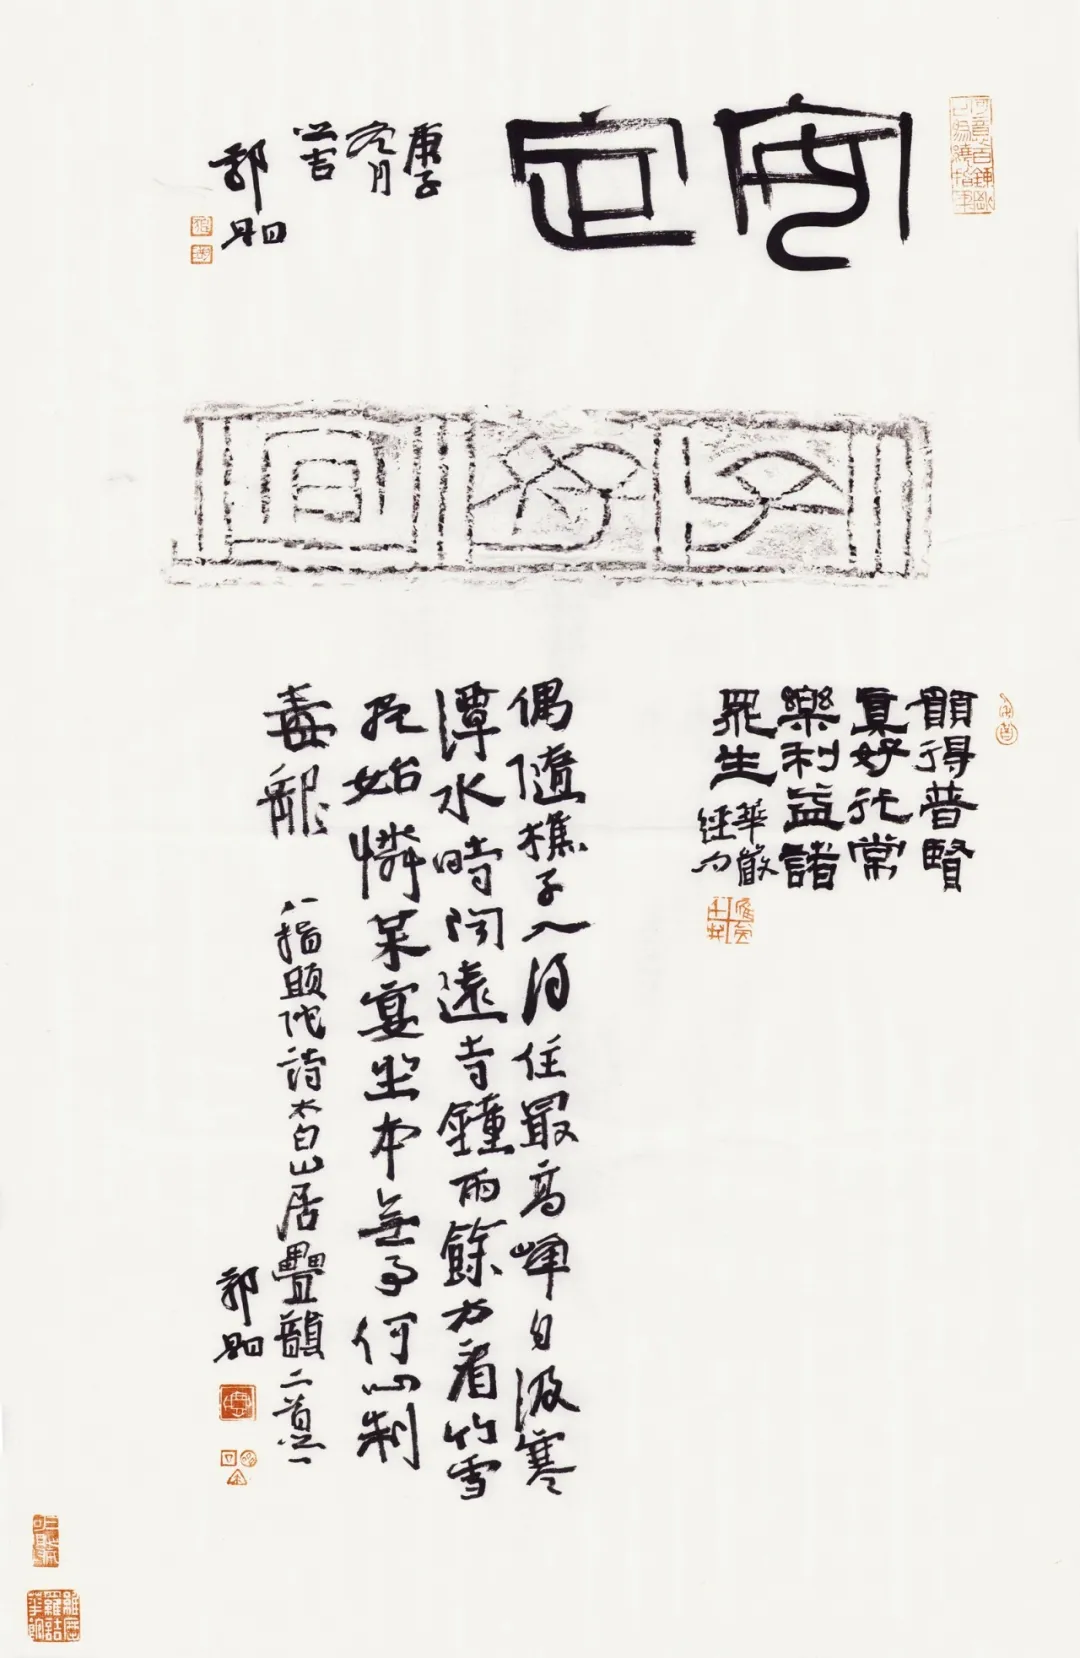 安定
庚子
冬月
郭
宜
願得普賢
真好行常
樂利益諸
眾生 華嚴
經句
偶隨樵子入得住最高峰自汲寒
潭水時聞遠寺鐘雨餘方看竹雪
後始憐松宴坐本無事何心制
毒龍 八指頭陀詩太白山居疊韻二首之一
郭